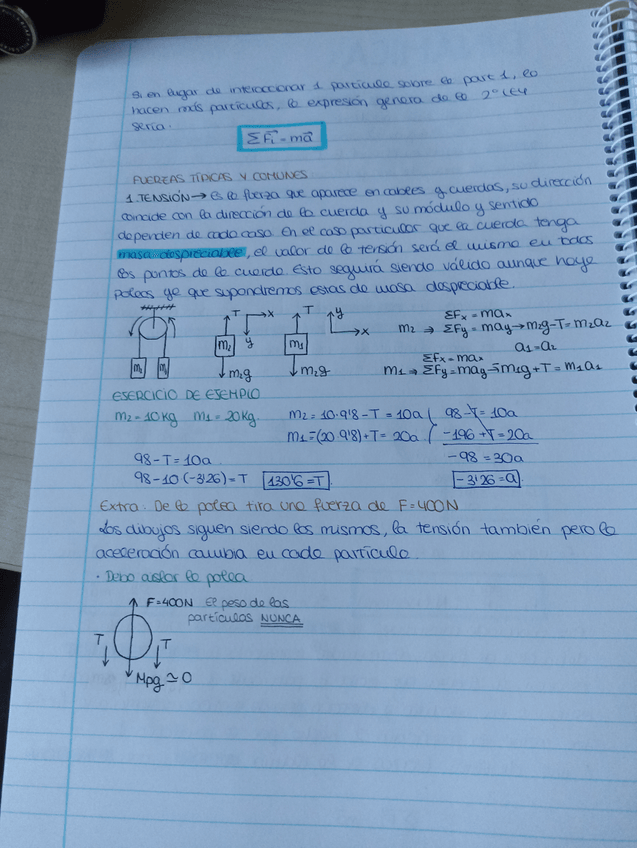 Si en lugar de interaccionar 1 partícula sobre la part 1, lo
hacen más partículas, la expresión genera de la 2º LEY
sería.
ΣF⃗i = ma⃗
FUERZAS TÍPICAS Y COMUNES
1. TENSIÓN → Es la fuerza que aparece en cables y cuerdas, su dirección
coincide con la dirección de la cuerda y su módulo y sentido
dependen de cada caso. En el caso particular que la cuerda tenga
masa despreciable, el valor de la tensión será el mismo en todos
los puntos de la cuerda. Esto seguirá siendo válido aunque haya
poleas, ya que supondremos estas de masa despreciable.
T x y m2 m2g
T m1 m2g
y x
m2 ⇒ ΣFx = max
ΣFy = may → m2g - T = m2a2
a1 = a2
m1 ⇒ ΣFx = max
ΣFy = may → -m1g + T = m1a1
EJERCICIO DE EJEMPLO
m2 = 10 kg m1 = 20 kg. m2 = 10·9'8 - T = 10a 98 - T = 10a
m1 = -(20·9'8) + T = 20a -196 + T = 20a
98 - T = 10a -98 = 30a
98 - 10 (-3'26) = T 130'6 = T -3'26 = a
Extra. De la polea tira una fuerza de F = 400N
Los dibujos siguen siendo los mismos, la tensión también pero la
aceleración cambia en cada partícula.
· Debo aislar la polea
F = 400N El peso de las
partículas NUNCA
T T
Mpg ≃ 0